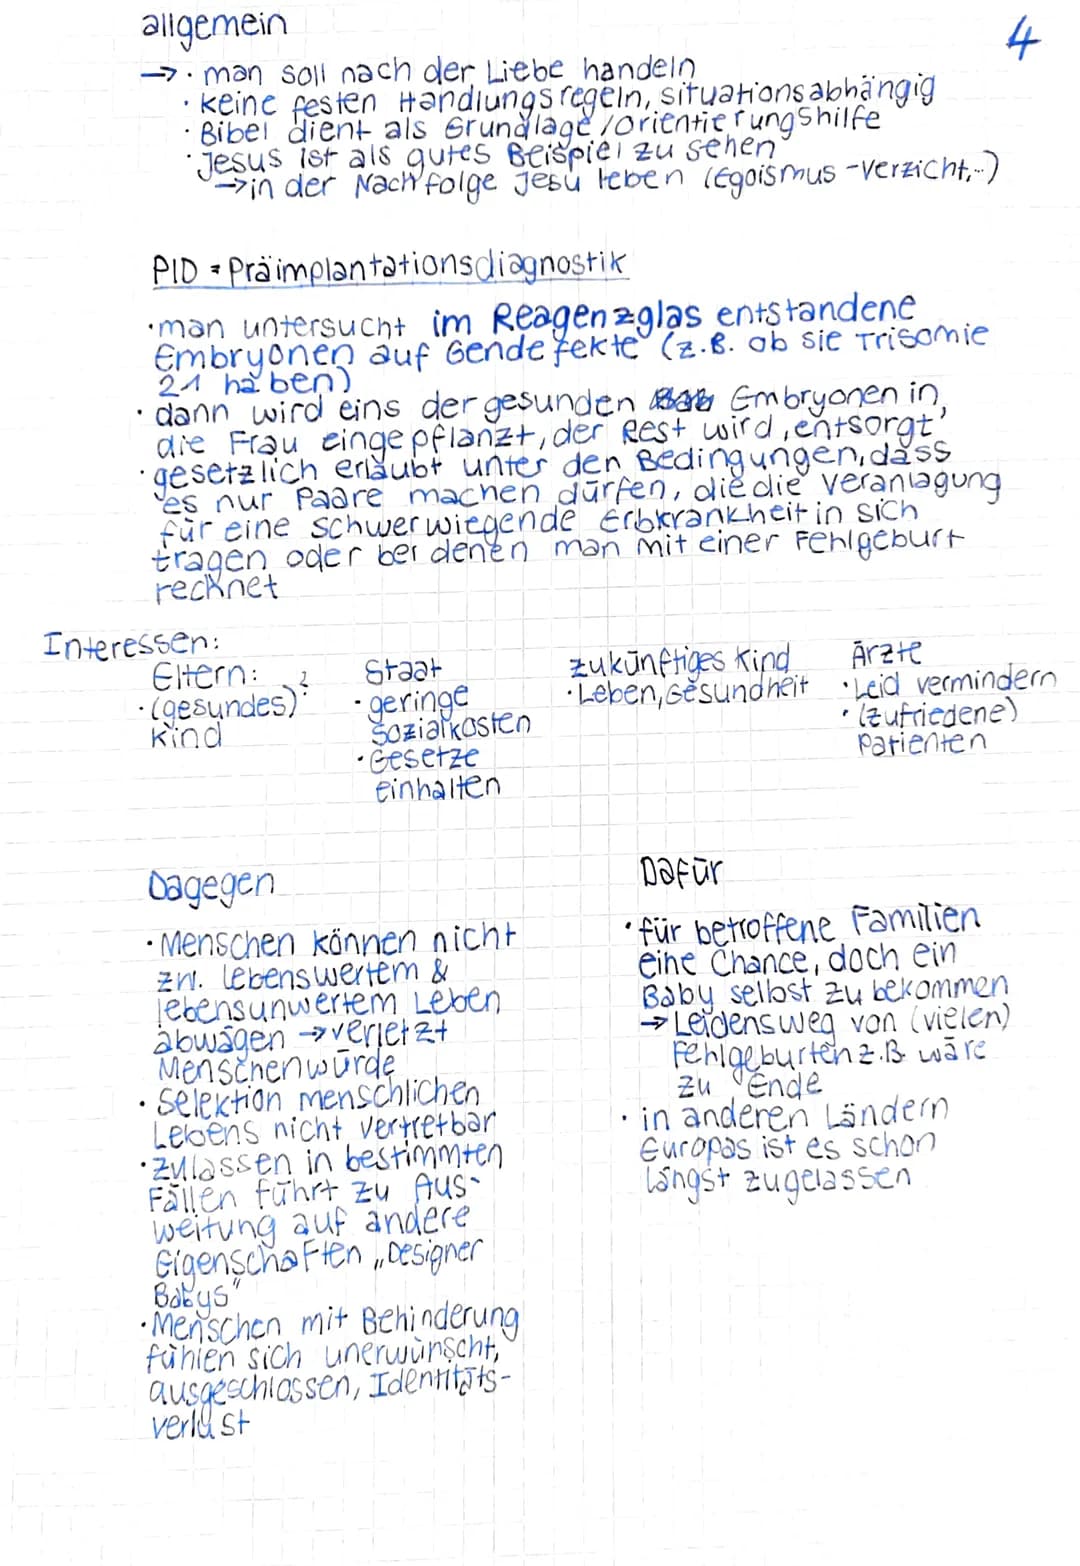 allgemein
4
→ · man soll nach der Liebe handeln
· keine festen Handlungsregeln, situationsabhängig
· Bibel dient als Grundlage/Orientierungshilfe
· Jesus ist als gutes Beispiel zu sehen
→ in der Nachfolge Jesu leben (Egoismus-verzicht,..)
PID = Präimplantationsdiagnostik
· man untersucht im Reagenzglas entstandene
Embryonen auf Gendefekte (z.B. ob sie Trisomie
21 haben)
· dann wird eins der gesunden Embryonen in
die Frau eingepflanzt, der Rest wird „entsorgt"
· gesetzlich erlaubt unter den Bedingungen, dass
es nur Paare machen dürfen, die die Veranlagung
für eine schwerwiegende Erbkrankheit in sich
tragen oder bei denen man mit einer Fehlgeburt
rechnet
Interessen:
Eltern:
· (gesundes)?
Kind
Staat
· geringe
Sozialkosten
· Gesetze
einhalten
zukünftiges Kind
· Leben, Gesundheit
Ärzte
· Leid vermindern
· (zufriedene)
Patienten
Dagegen
· Menschen können nicht
zw. lebenswertem &
lebensunwertem Leben
abwägen → verletzt
Menschenwürde
· Selektion menschlichen
Lebens nicht vertretbar
· zulassen in bestimmten
Fällen führt zu Aus-
weitung auf andere
Eigenschaften „Designer
Babys"
· Menschen mit Behinderung
fühlen sich unerwünscht,
ausgeschlossen, Identitäts-
verlust
Dafür
· für betroffene Familien
eine Chance, doch ein
Baby selbst zu bekommen
→ Leidensweg von (vielen)
Fehlgeburten z.B. wäre
zu Ende
· in anderen Ländern
Europas ist es schon
längst zugelassen